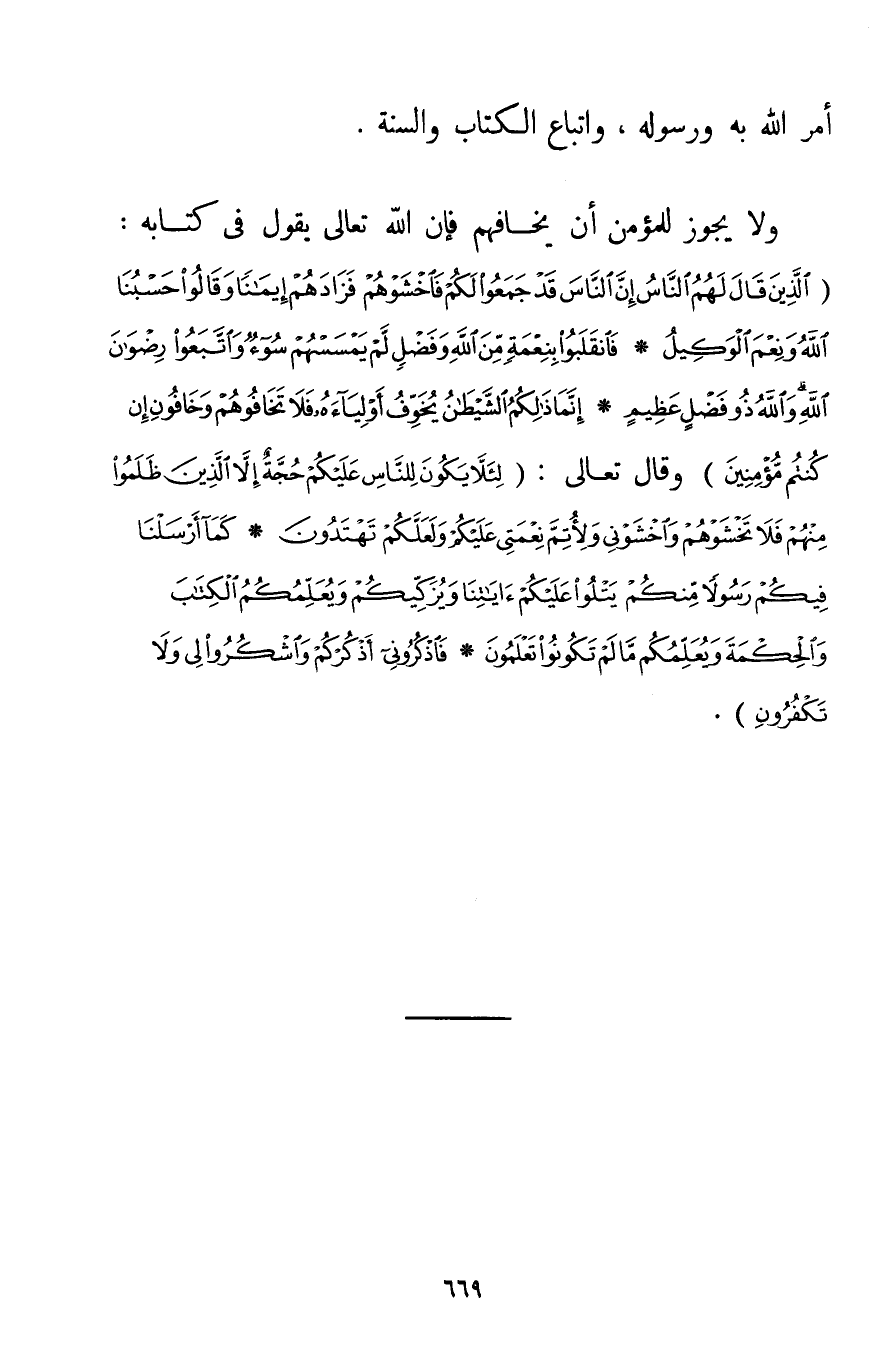 أمر الله به ورسوله ، واتباع الكتاب والسنة .
ولا يجوز للمؤمن أن يخافهم فإن الله تعالى يقول فى كتابه :
( ٱلَّذِينَ قَالَ لَهُمُ ٱلنَّاسُ إِنَّ ٱلنَّاسَ قَدْ جَمَعُواْ لَكُمْ فَٱخْشَوْهُمْ فَزَادَهُمْ إِيمَٰنًا وَقَالُواْ حَسْبُنَا
ٱللَّهُ وَنِعْمَ ٱلْوَكِيلُ * فَٱنقَلَبُواْ بِنِعْمَةٍ مِّنَ ٱللَّهِ وَفَضْلٍ لَّمْ يَمْسَسْهُمْ سُوٓءٌ وَٱتَّبَعُواْ رِضْوَٰنَ
ٱللَّهِ ۗ وَٱللَّهُ ذُو فَضْلٍ عَظِيمٍ * إِنَّمَا ذَٰلِكُمُ ٱلشَّيْطَٰنُ يُخَوِّفُ أَوْلِيَآءَهُۥ فَلَا تَخَافُوهُمْ وَخَافُونِ إِن
كُنتُم مُّؤْمِنِينَ ) وقال تعالى : ( لِئَلَّا يَكُونَ لِلنَّاسِ عَلَيْكُمْ حُجَّةٌ إِلَّا ٱلَّذِينَ ظَلَمُواْ
مِنْهُمْ فَلَا تَخْشَوْهُمْ وَٱخْشَوْنِى وَلِأُتِمَّ نِعْمَتِى عَلَيْكُمْ وَلَعَلَّكُمْ تَهْتَدُونَ * كَمَآ أَرْسَلْنَا
فِيكُمْ رَسُولًا مِّنكُمْ يَتْلُواْ عَلَيْكُمْ ءَايَٰتِنَا وَيُزَكِّيكُمْ وَيُعَلِّمُكُمُ ٱلْكِتَٰبَ
وَٱلْحِكْمَةَ وَيُعَلِّمُكُم مَّا لَمْ تَكُونُواْ تَعْلَمُونَ * فَٱذْكُرُونِىٓ أَذْكُرْكُمْ وَٱشْكُرُواْ لِى وَلَا
تَكْفُرُونِ ) .
٦٦٩